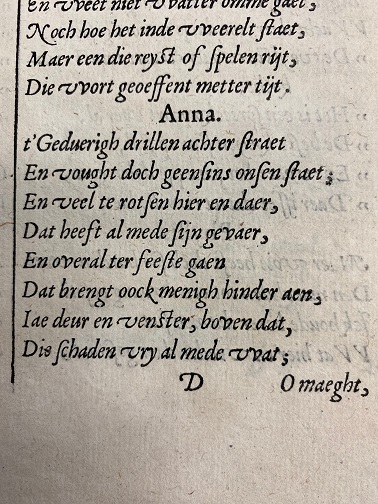 En vveet niet vvatter omme gaet,
Noch hoe het inde vveerelt ſtaet,
Maer een die reyſt of ſpelen rijt,
Die vvort geoeffent metter tijt.
Anna.
t'Geduerigh drillen achter ſtraet
En vought doch geenſins onſen ſtaet;
En veel te rotſen hier en daer,
Dat heeft al mede ſijn gevaer,
En overal ter feeſte gaen
Dat brengt oock menigh hinder aen,
Iae deur en venſter, boven dat,
Die ſchaden vry al mede vvat;
D O maeght,